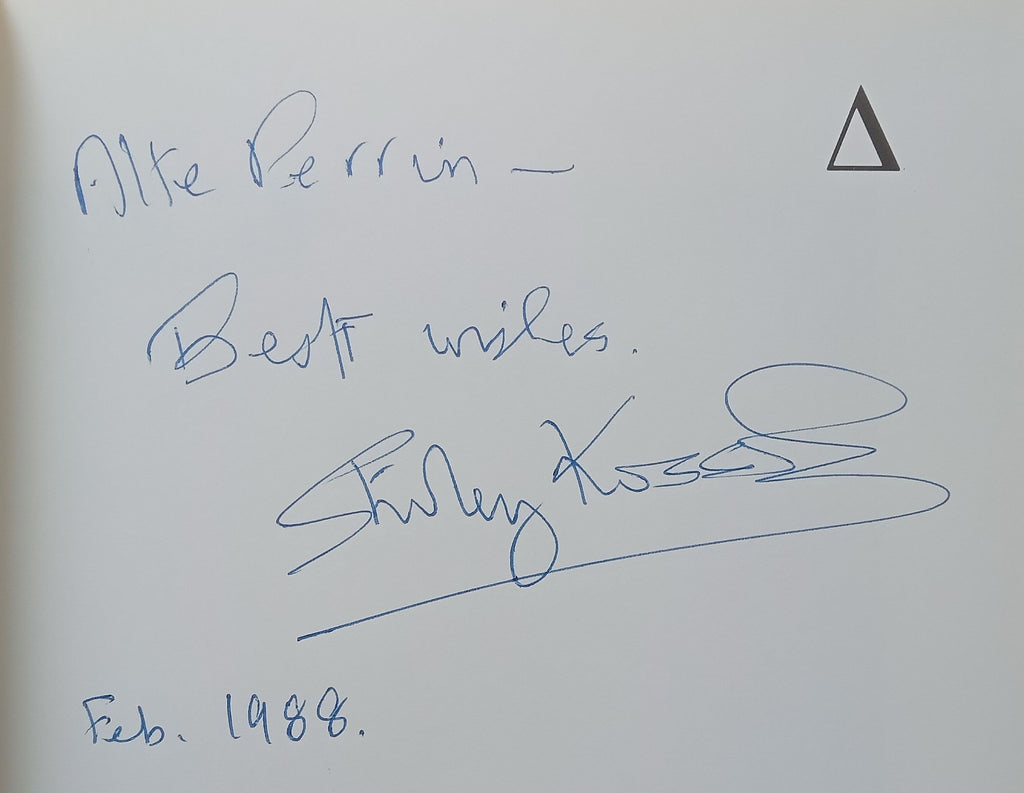 Alte Perrin —
Best wishes.
Shirley
Feb. 1988.